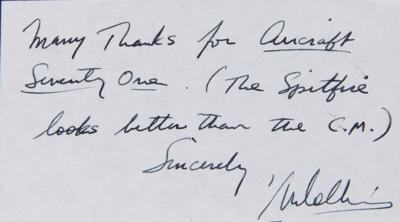 Many Thanks for Aircraft
Seventy One. (The Spitfire
looks better than the C.M.)
Sincerely